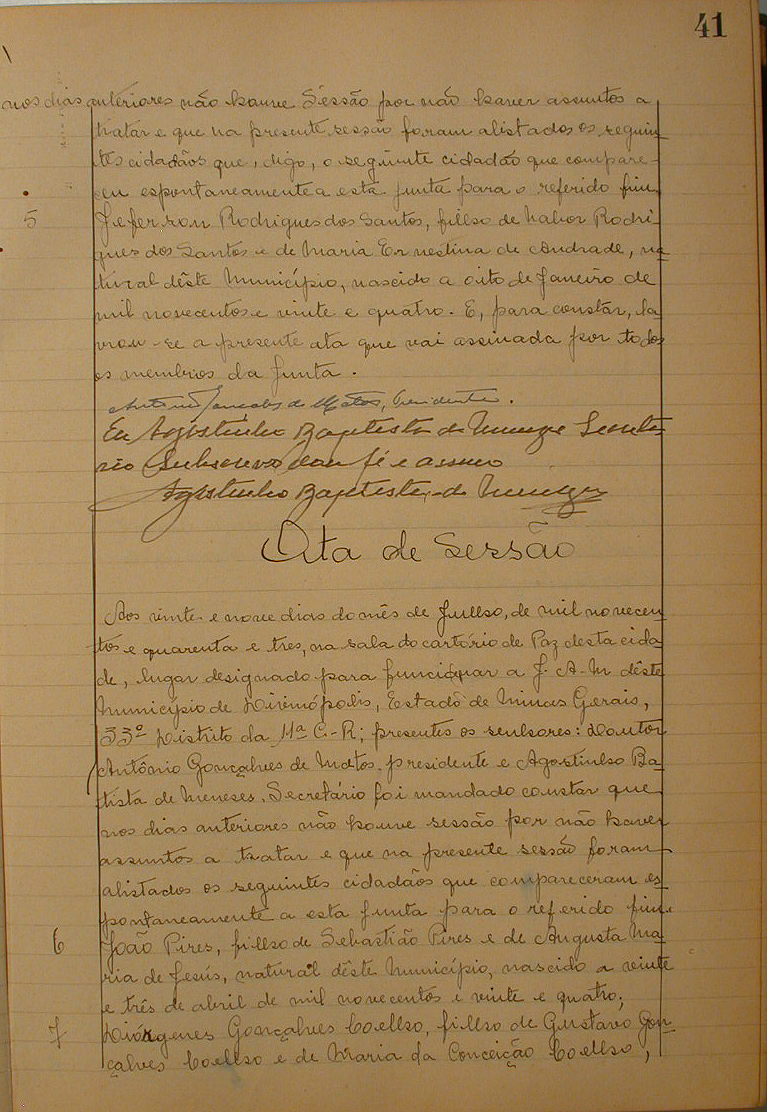 41
nos dias anteriores não houve Sessão por não haver assuntos a
tratar e que na presente sessão foram alistados os seguin
tes cidadãos que, digo, o seguinte cidadão que compare-
ceu espontaneamente a esta Junta para o referido fim,
5 Jeferson Rodrigues dos Santos, filho de Nabor Rodri-
gues dos Santos e de Maria Ernestina de Andrade, na
tural dêste Município, nascido a oito de Janeiro de
mil novecentos e vinte e quatro. E, para constar, la
vrou-se a presente ata que vai assinada por todos
os membros da Junta.
Antônio Gonçalves de Matos, Presidente.
Eu Agostinho Baptista de Menezes Secreta-
rio Subscrevo dou fé e assino
Agostinho Baptista de Menezes
Ata de Sessão
Aos vinte e nove dias do mês de Julho, de mil novecen
tos e quarenta e tres, na sala do cartório de Paz desta cida
de, lugar designado para funcionar a J.A.M dêste
Município de Divinópolis, Estado de Minas Gerais,
33º Distrito da 11ª C.-R; presentes os senhores: Doutor
Antônio Gonçalves de Matos, presidente e Agostinho Ba
tista de Meneses, Secretário foi mandado constar que
nos dias anteriores não houve sessão por não haver
assuntos a tratar e que na presente sessão foram
alistados os seguintes cidadãos que compareceram es
pontaneamente a esta Junta para o referido fim:
6 João Pires, filho de Sebastião Pires e de Augusta Ma
ria de Jesús, natural dêste Município, nascido a vinte
e três de abril de mil novecentos e vinte e quatro;
7 Diógenes Gonçalves Coelho, filho de Gustavo Gon
çalves Coelho e de Maria da Conceição Coelho,